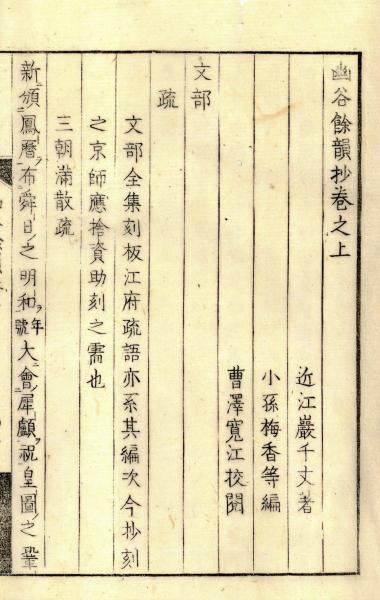 幽谷餘韻抄卷之上
近江巖千丈著
小孫梅香等編
曹澤寬江挍閱
文部
疏
文部全集刻板江府疏語亦系其編次今抄刻
之京師應捨資助刻之需也
三朝滿散疏
新頒鳳曆布舜日之明和年號大會犀顱祝皇圖之鞏